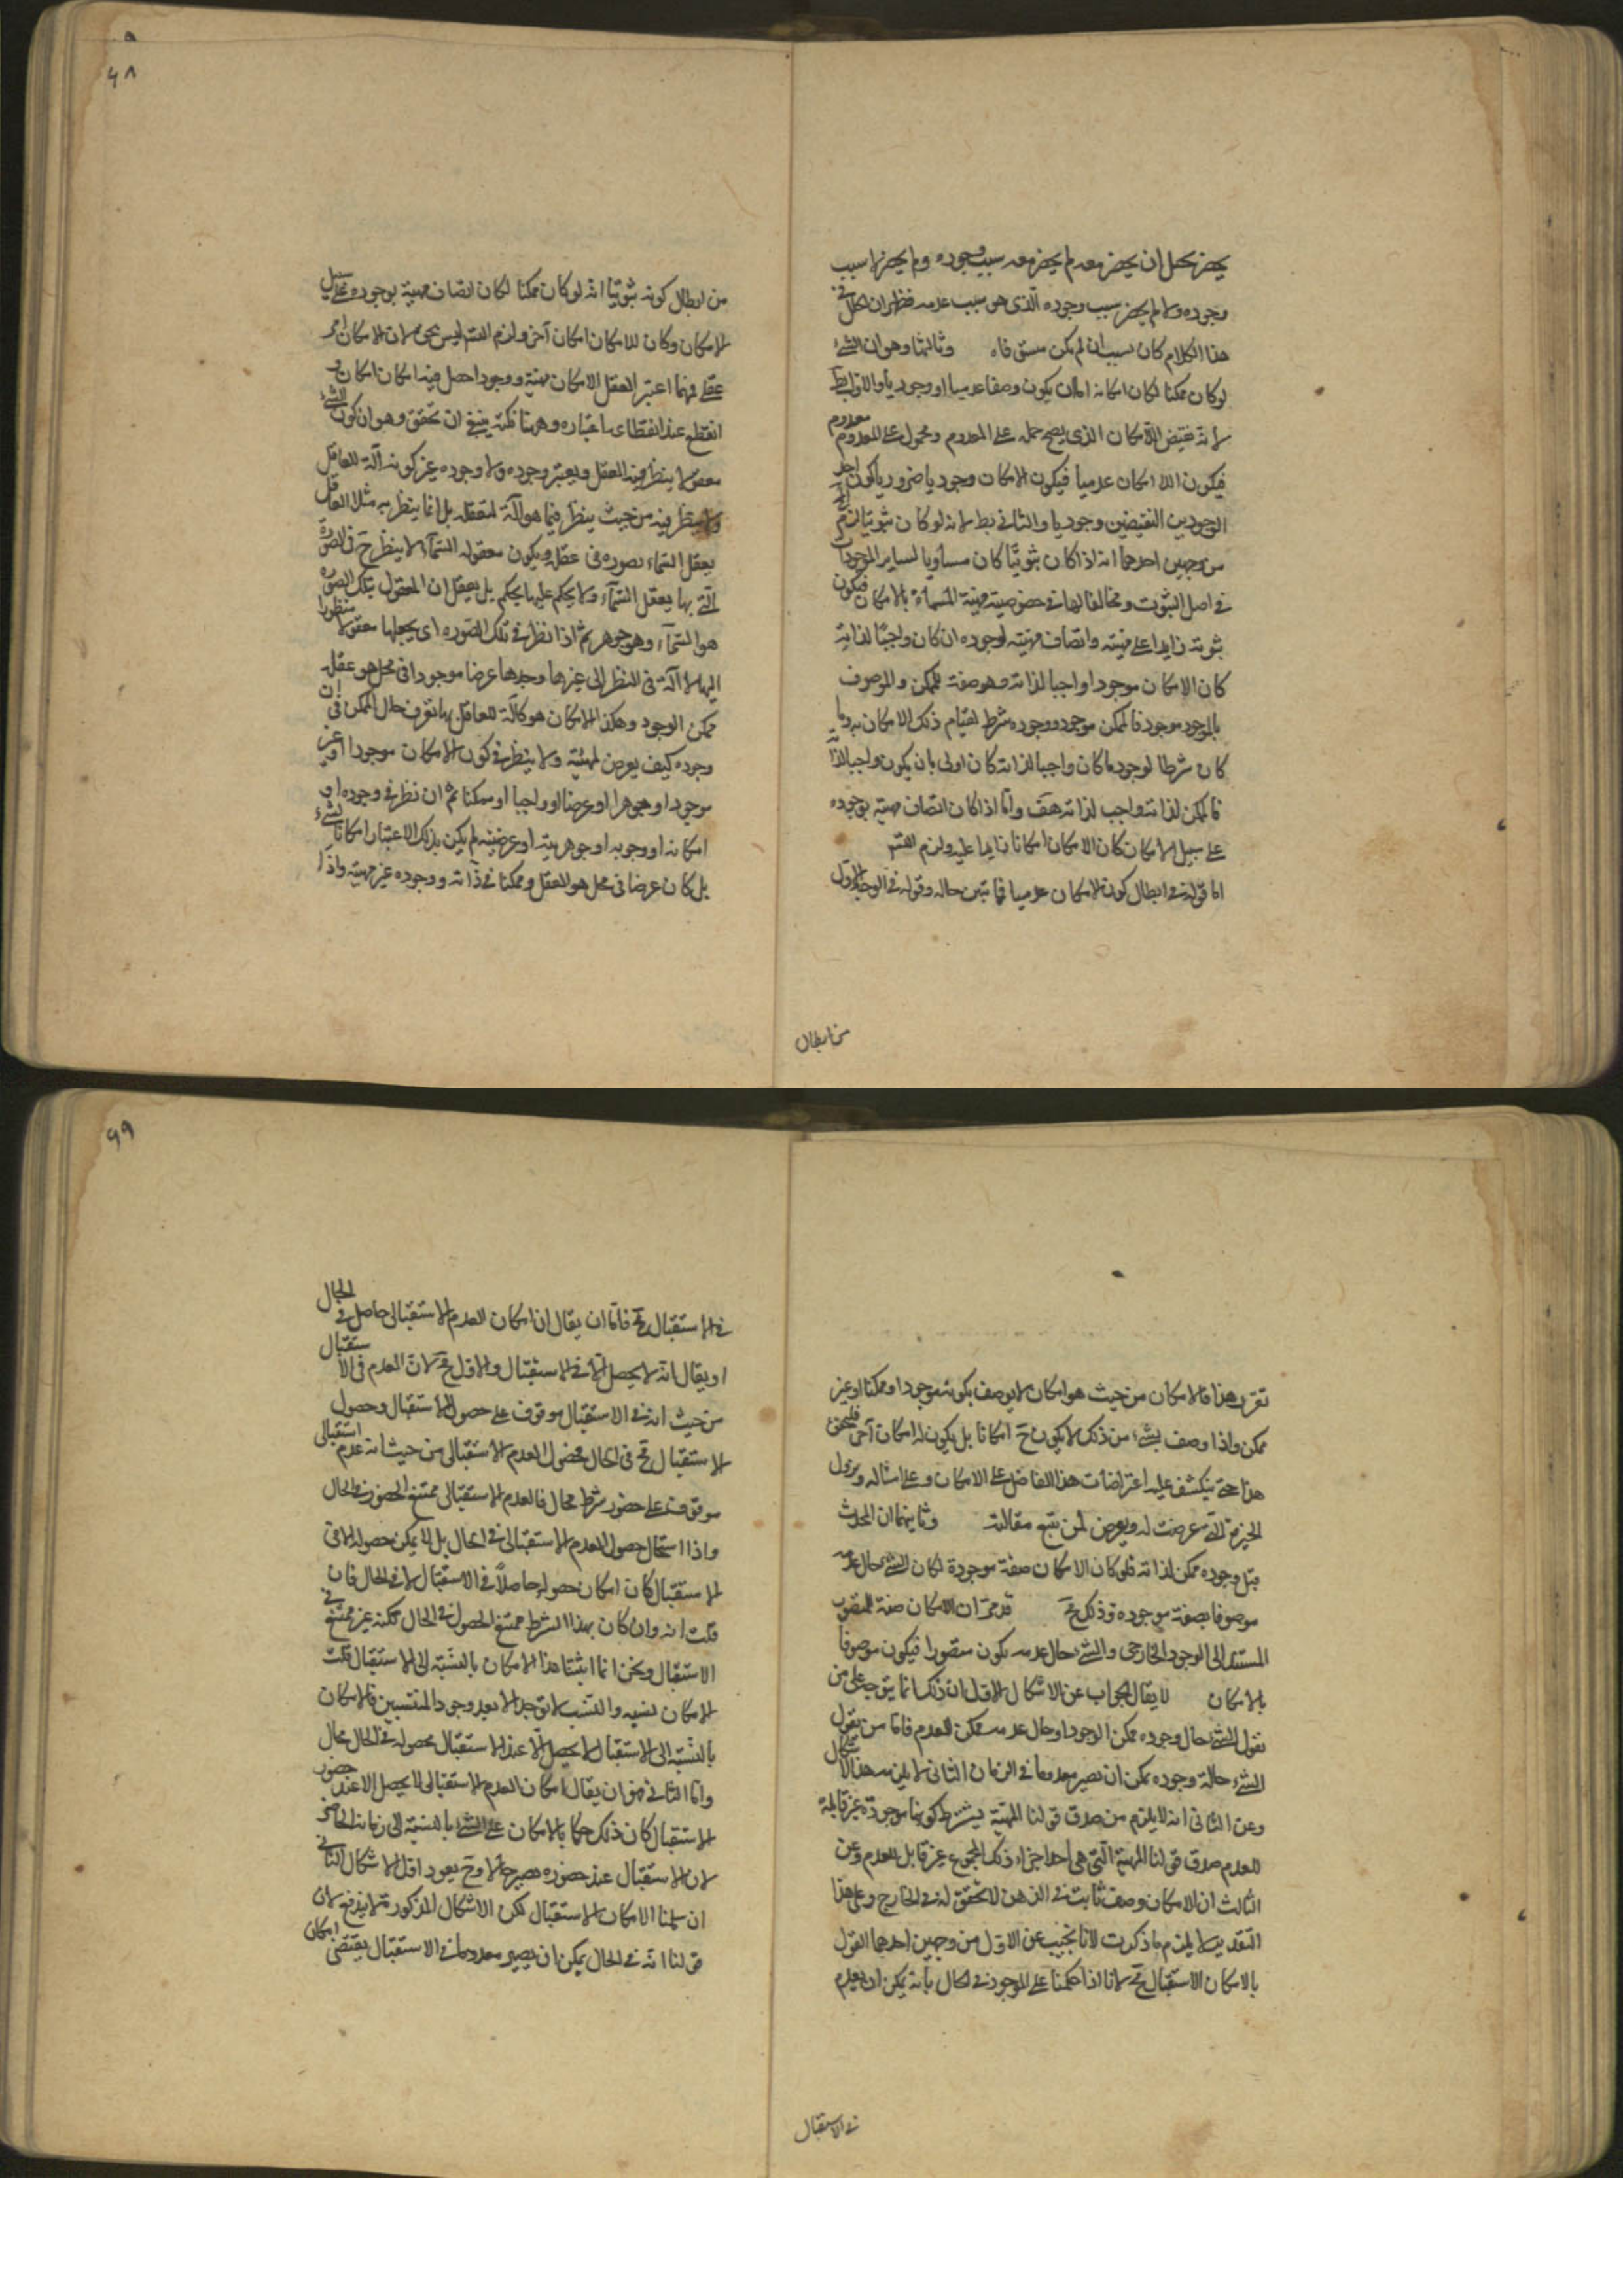 يحضر يحتمل ان يحضر معه م لم يحضر معه سبب وجوده ولم يحضر لا سبب
وجوده ولا لم يحضر سبب وجوده الذى هو سبب عدمه فظهر ان الخلل فى
هذا الكلام كان بسبب ان لم يكن مستوفاه وثالثها وهو ان الشئ
لو كان ممكنا لكان امكانه اما ان يكون وصفا عدميا او وجوديا والاول بط
لانه نقيض اللاامكان الذى يصح حمله على المعدوم ومحمول على المعدوم معدوم
فيكون اللاامكان عدميا فيكون الامكان وجوديا ضرورة كون احد
الوجودين النقيضين وجوديا والثانى بط لانه لو كان ثبوتيا لزم
من وجهين احدهما انه اذا كان ثبوتيا كان مساويا لساير الموجودات
فى اصل الثبوت ومخالفا لها فى خصوصيته مهيته المسماة بالامكان فيكون
ثبوته زايدا على مهيته واتصاف مهيته لوجوده ان كان واجبا لذاته
كان الامكان موجودا واجبا لذاته وهو صفة للممكن والموصوف
بالموجود موجود فالممكن موجود ووجوده شرط لقيام ذلك الامكان به وما
كان شرطا لوجود ما كان واجبا لذاته كان اولى بان يكون واجبا لذاته
فالممكن لذاته واجب لذاته هف واما اذا كان اتصاف مهيته بوجوده
على سبيل الامكان كان الامكان امكانا زايدا عليه ولزم التس
اما قوله فى ابطال كون الامكان عدميا فما تبين حاله وقوله فى الوجه الاول
من ابطال
٦٨
من ابطال كونه ثبوتيا انه لو كان ممكنا لكان اتصاف مهيته بوجوده على سبيل
الامكان وكان للامكان امكان آخر ولزم التس ليس بحق لان الامكان امر
عقلى فمهما اعتبر العقل الامكان مهية ووجودا حصل فيه امكان امكان و
انقطع عند انقطاع اعتباره وههنا نكتة ينبغى ان تحقق وهو ان كون الشئ
معقولا ينظر فيه العقل ويعتبر وجوده ولا وجوده غير كونه آلة للعاقل
ولا ينظر فيه من حيث ينظر فيما هو آلة لتعقله بل انما ينظر به مثلا العاقل
يعقل السماء بصورة فى عقله ويكون معقوله السماء لا ينظر ح فى الصورة
التى بها يعقل السماء ولا يحكم عليها بحكم بل يعقل ان المعقول بتلك الصورة
هو السماء وهو جوهر ثم اذا نظر فى تلك الصورة اى يجعلها معقولا منظورا
اليها لا آلة فى النظر الى غيرها وجدها عرضا موجودا فى محل هو عقله
ممكن الوجود وهكذا الامكان هو كآلة للعاقل بها تعرف حال الممكن فى ان
وجوده كيف يعرض لمهيته ولا ينظر فى كون الامكان موجودا او غير
موجود او جوهرا او عرضا او واجبا او ممكنا ثم ان نظر فى وجوده او
امكانه او وجوبه او جوهريته او عرضيته لم يكن بذلك الاعتبار امكانا لشئ
بل كان عرضا فى محل هو العقل وممكنا فى ذاته ووجوده غير مهيته واذا
تقرر هذا فالامكان من حيث هو امكان لا يوصف بكونه موجودا وممكنا او غير
ممكن واذا وصف بشئ من ذلك لا يكون ح امكانا بل يكون له امكان آخر فليحقق
هذا حتى ينكشف عليه اعتراضات هذا الفاضل على الامكان وعلى امثاله ويزول
الحيرة التى عرضت له ويعرض لمن يتبع مقالته وثانيهما ان المحدث
قبل وجوده ممكن لذاته فلو كان الامكان صفة موجودة لكان الشئ حال عدمه
موصوفا بصفة موجوده وذلك مح قد مر ان الامكان صفة للمتصور
المستند الى الوجود الخارجى والشئ حال عدمه يكون متصورا فيكون موصوفا
بالامكان لا يقال الجواب عن الاشكال الاول ان ذلك انما يتوجه على من
يقول الشئ حال وجوده ممكن الوجود او حال عدمه ممكن العدم فاما من يقول
الشئ حالة وجوده يمكن ان يصير معدوما فى الزمان الثانى لا يلزمه هذا الاشكال
وعن الثانى انه لا يلزم من صدق قولنا المهية بشرط كونها موجودة غير قابلة
للعدم صدق قولنا المهية التى هى احد اجزاء ذلك المجموع غير قابل للعدم وعن
الثالث ان الامكان وصف ثابت فى الذهن لا تحقق له فى الخارج وعلى هذا
التقدير لا يلزم ما ذكرت لانا نجيب عن الاول من وجهين احدهما القول
بالامكان الاستقبالى مح لانا اذا حكمنا على الموجود فى الحال بانه يمكن ان يعدم
فى الاستقبال
٦٩
فى الاستقبال مح فاما ان يقال ان امكان العدم الاستقبالى حاصل فى الحال
او يقال انه لا يحصل الا فى الاستقبال والاول مح لان العدم فى الاستقبال
من حيث انه فى الاستقبال موقوف على حصول الاستقبال وحصول
الاستقبال مح فى الحال فحضول العدم الاستقبالى من حيث انه عدم استقبالى
موقوف على حضور شرط محال فالعدم الاستقبالى ممتنع الحضور فى الحال
واذا استحال حصول العدم الاستقبالى فى الحال بل لا يمكن حصوله الا فى
الاستقبال كان امكان حصوله حاصلا فى الاستقبال لا فى الحال فان
قلت انه وان كان بهذا الشرط ممتنع الحصول فى الحال لكنه غير ممتنع فى
الاستقبال ونحن انما اثبتنا هذا الامكان بالنسبة الى الاستقبال قلت
الامكان نسبه والنسب لا توجد الا بعد وجود المنتسبين فالامكان
بالنسبة الى الاستقبال لا يحصل الا عند الاستقبال فحصوله فى الحال محال
واما الثانى فهو ان يقال امكان العدم الاستقبالى لا يحصل الا عند حضور
الاستقبال كان ذلك حكما بالامكان على الشئ بالنسبة الى زمانه الحاضر
لان الاستقبال عند حضوره يصير حالا وح يعود اول الاشكال الثانى
ان سلمنا الامكان الاستقبالى لكن الاشكال المذكور لا يندفع لان
قولنا انه فى الحال يمكن ان يصير معدوما فى الاستقبال يقتضى امكان